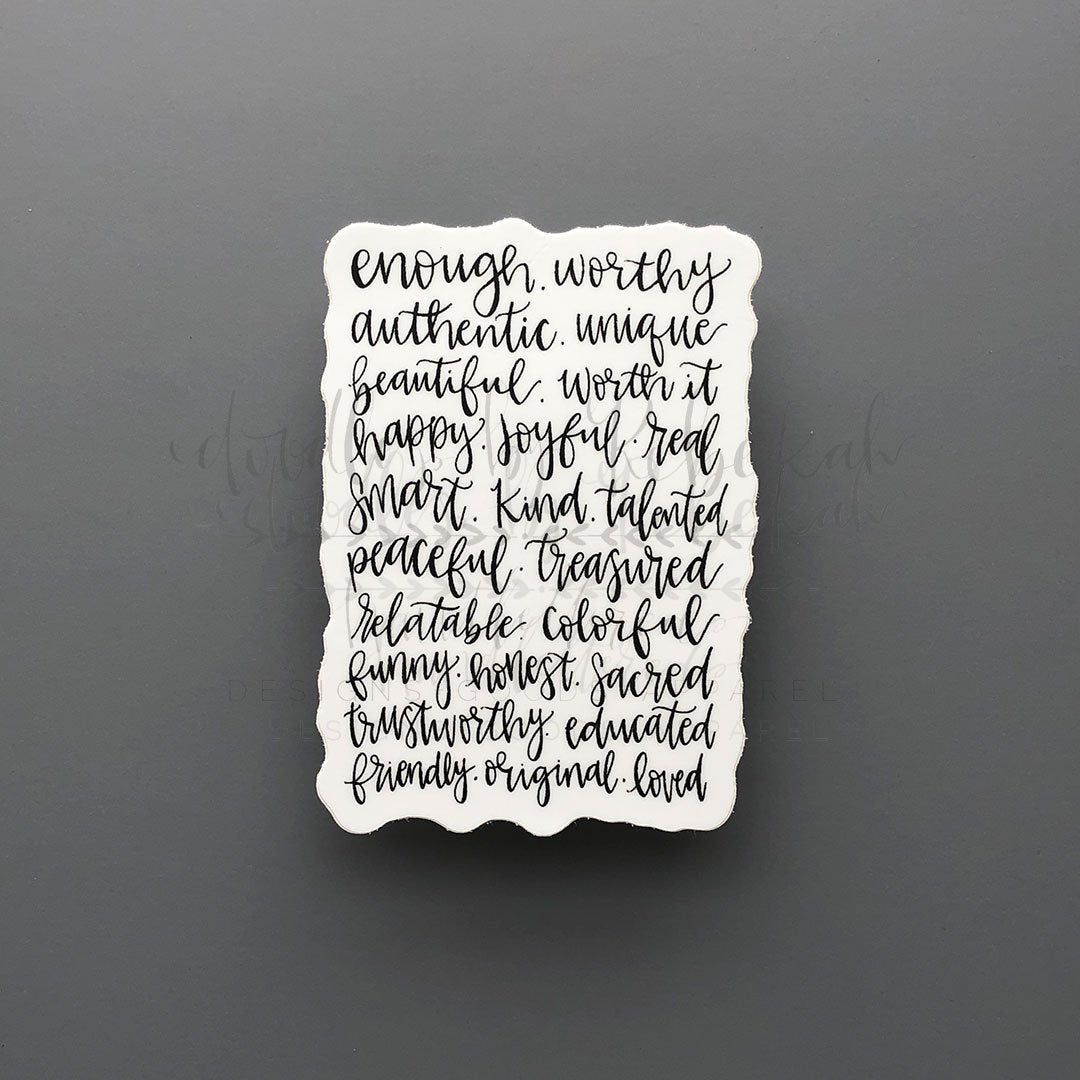 enough. worthy
authentic. unique
beautiful. worth it
happy. joyful. real
smart. Kind. talented
peaceful. treasured
relatable. colorful
funny. honest. sacred
trustworthy. educated
friendly. original. loved